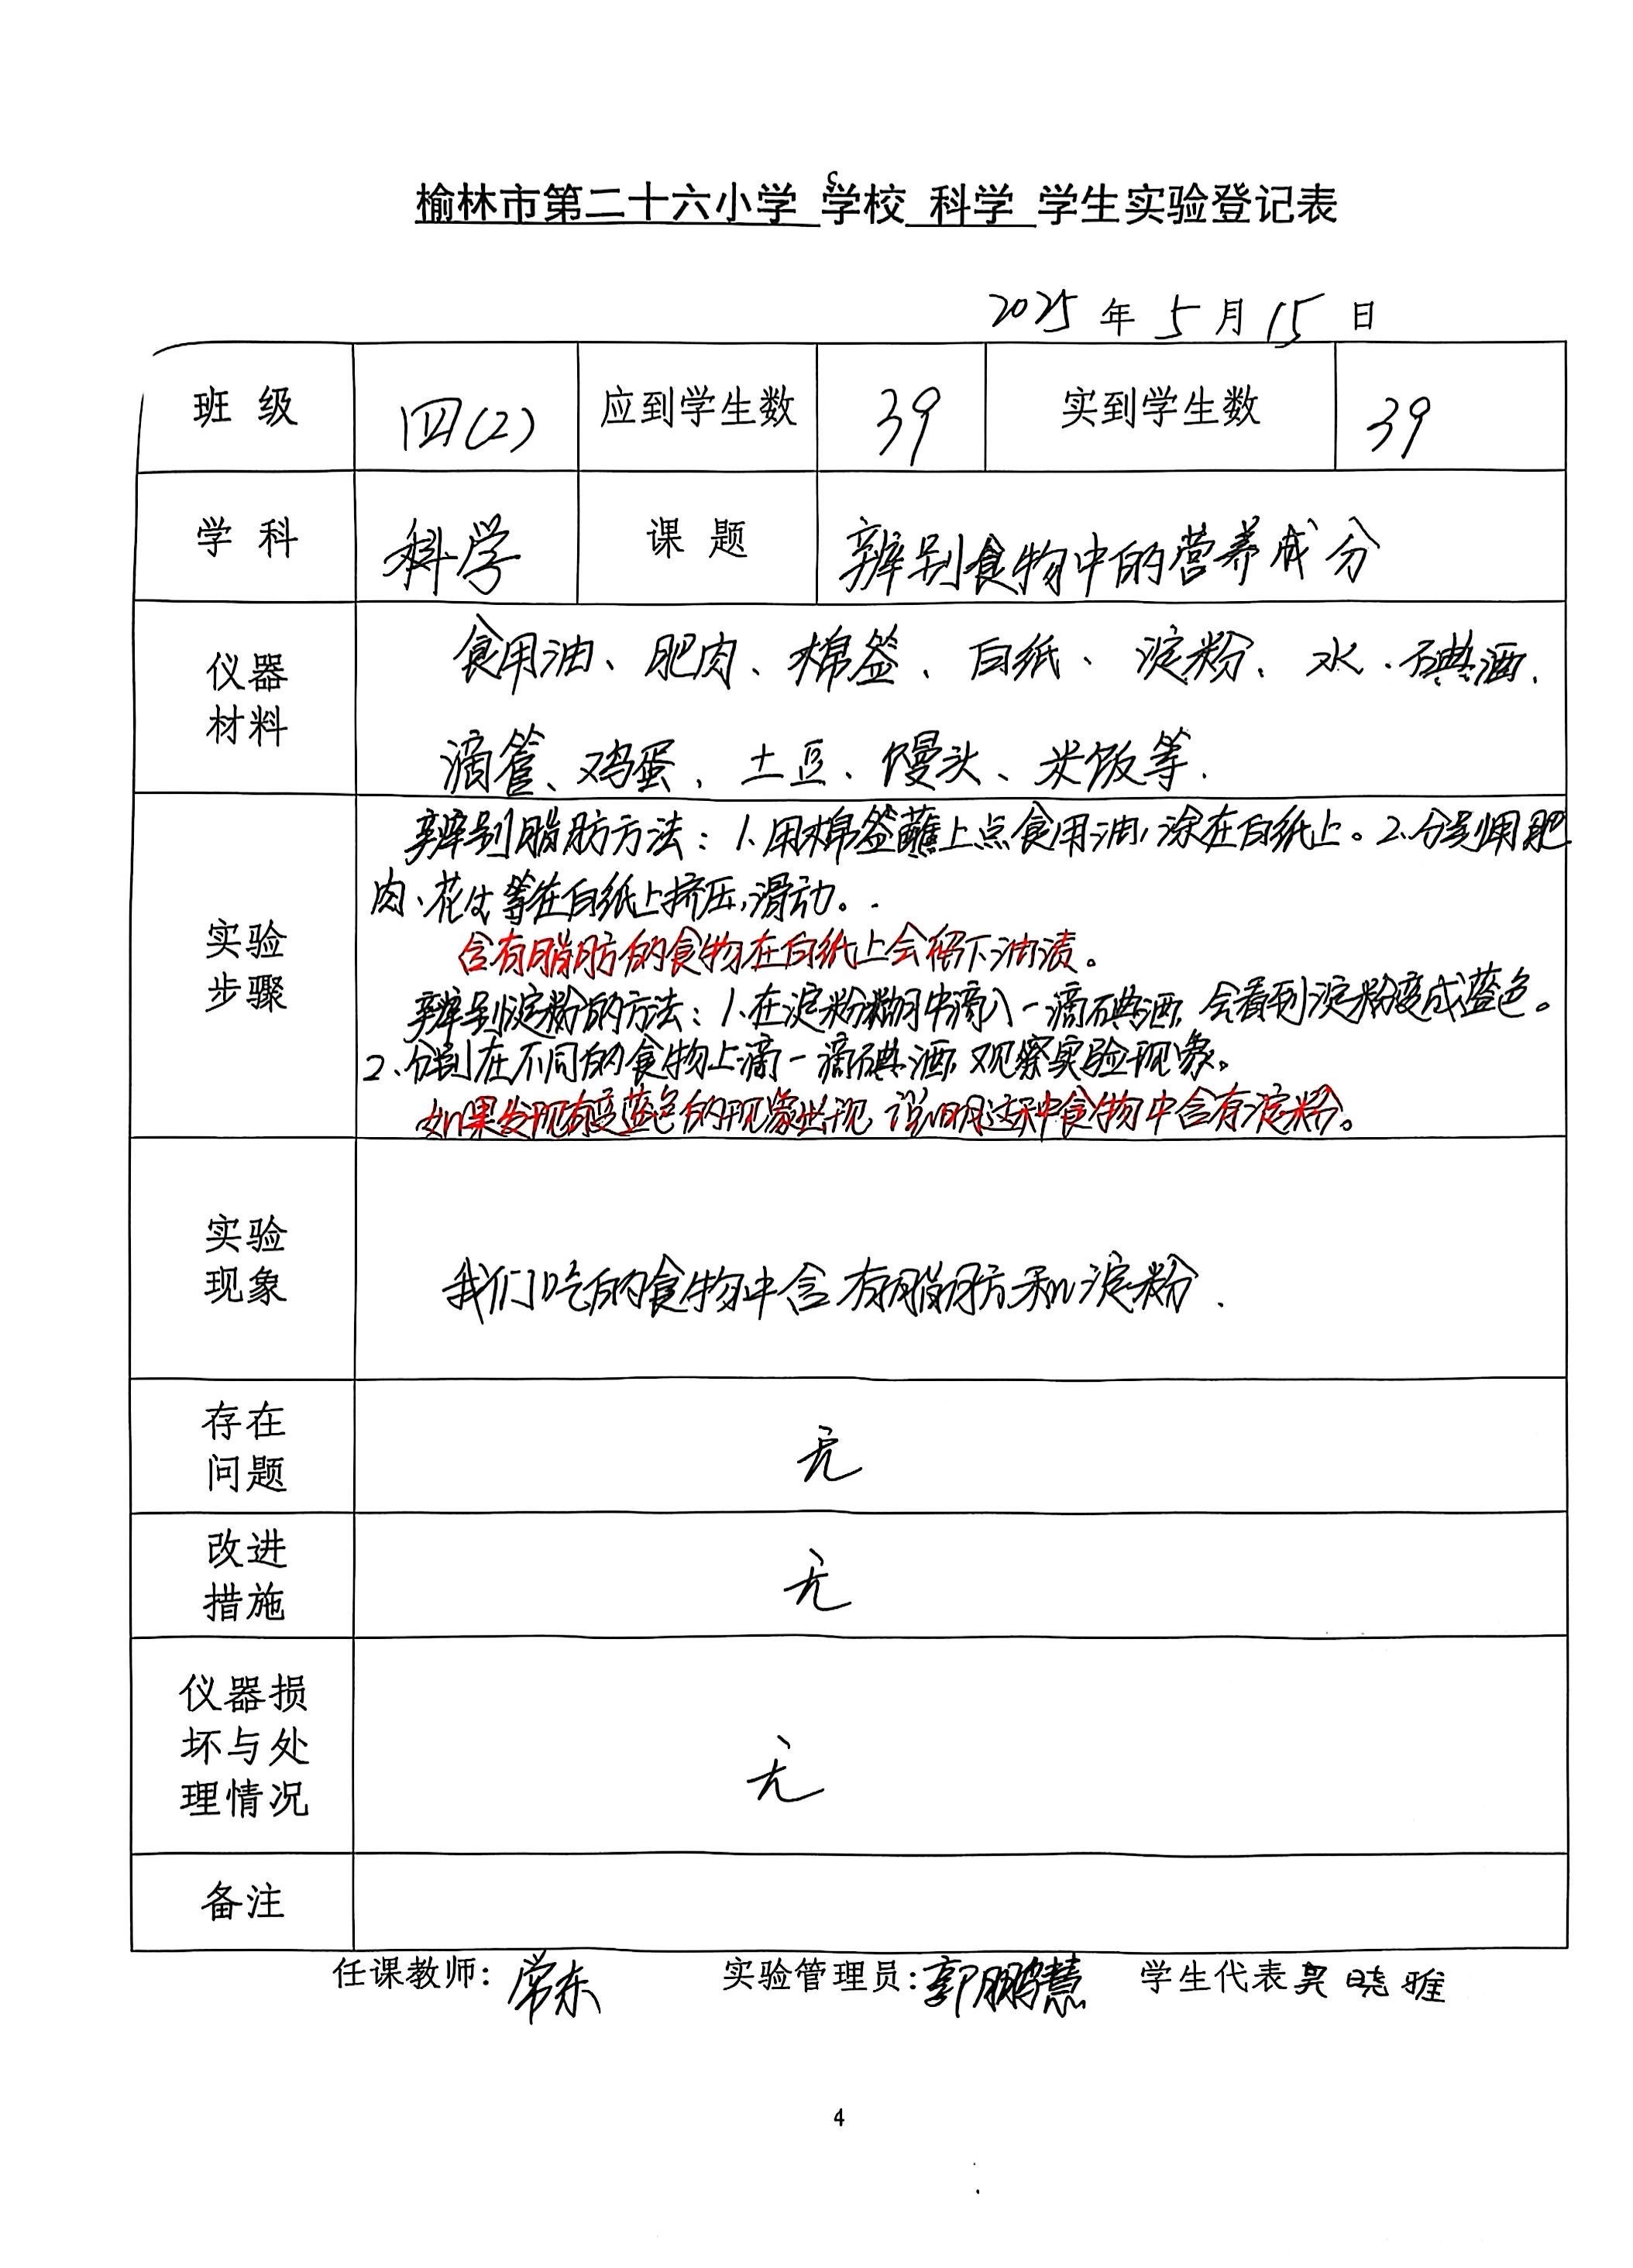 榆林市第二十六小学 学校 科学 学生实验登记表
2025 年 5 月 15 日
班 级 四(2) 应到学生数 39 实到学生数 39
学 科 科学 课 题 辨别食物中的营养成分
仪器
材料
食用油、肥肉、棉签、白纸、淀粉、水、碘酒、
滴管、鸡蛋、土豆、馒头、米饭等.
实验
步骤
辨别脂肪方法：1.用棉签蘸上点食用油，涂在白纸上。2.分别用肥
肉、花生等在白纸上挤压,滑动。
含有脂肪的食物在白纸上会留下油渍。
辨别淀粉的方法：1.在淀粉糊中滴入一滴碘酒,会看到淀粉变成蓝色。
2.分别在不同的食物上滴一滴碘酒,观察实验现象。
如果发现有变蓝色的现象出现,说明这种食物中含有淀粉。
实验
现象
我们吃的食物中含有脂肪和淀粉.
存在
问题
无
改进
措施
无
仪器损
坏与处
理情况
无
备注
任课教师：常东 实验管理员：郭鹏慧 学生代表 吴晓雅
4